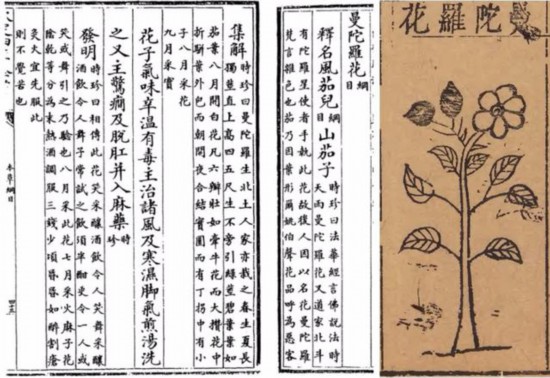 曼陀羅花
曼陀羅花 綱目
釋名風茄兒 綱目 山茄子 時珍曰法華經言佛說法時
天雨曼陀羅花又道家北斗
有陀羅星使者手執此花故後人因以名花曼陀羅
梵言雜色也茄乃因葉形爾姚伯聲花品呼為惡客
集解 時珍曰曼陀羅生北土人家亦栽之春生夏長
獨莖直上高四五尺生不旁引綠莖碧葉葉如
茄葉八月開白花凡六瓣狀如牽牛花而大攢花中
折駢葉外包而朝開夜合結實圓而有丁拐中有小
子八月采花
九月采實
花子氣味辛溫有毒主治諸風及寒濕脚氣煎湯洗
之又主驚癇及脫肛并入麻藥 時珍
發明 時珍曰相傳此花笑采釀酒飲令人笑舞采釀
酒飲令人舞予常試之飲須半酣更令一人或
笑或舞引之乃驗也八月采此花七月采火麻子花
陰乾等分為末熱酒調服三錢少頃昏昏如醉割瘡
灸火宜先服此
則不覺苦也
本草綱目